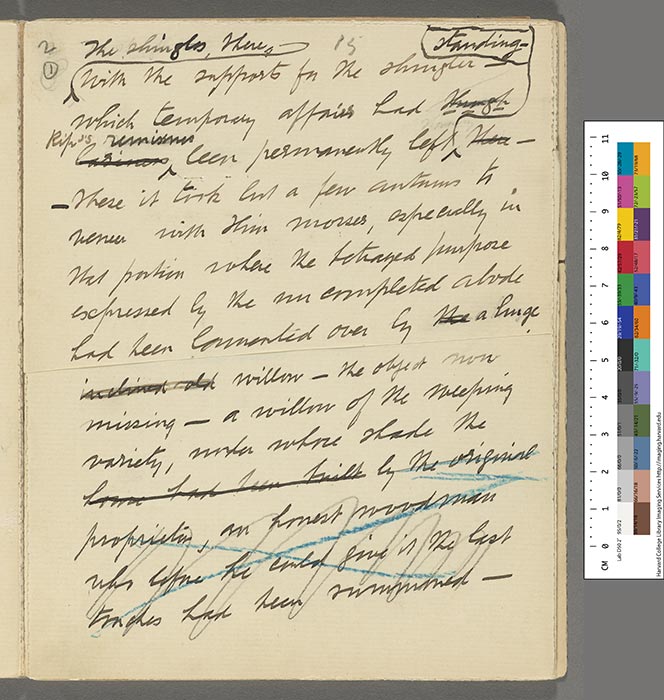 2
15
The shingles, there, —
standing —
①
With the supports for the shingles —
which temporary affairs had
Rip's remissness
been permanently left
— these it took but a few autumns to
veneer with thin mosses, especially in
that portion where the betrayed purpose
expressed by the uncompleted abode
had been lamented over by the a huge
inclined old willow — the object now
missing — a willow of the weeping
variety, under whose shade the
house had been built by the original
proprietor, an honest woodman
who before he could give it the last
touches had been summoned —
CM 0 1 2 3 4 5 6 7 8 9 10 11
Harvard College Library Imaging Services http://imaging.harvard.edu